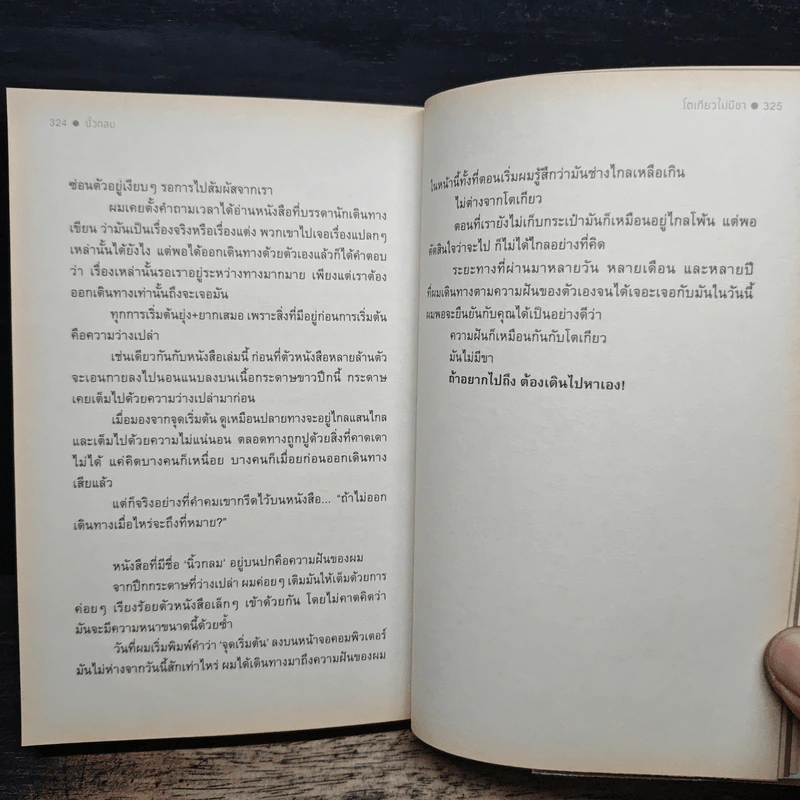 324 ● นิ้วกลม
ซ่อนตัวอยู่เงียบๆ รอการไปสัมผัสจากเรา
ผมเคยตั้งคำถามเวลาได้อ่านหนังสือที่บรรดานักเดินทาง
เขียน ว่ามันเป็นเรื่องจริงหรือเรื่องแต่ง พวกเขาไปเจอเรื่องแปลกๆ
เหล่านั้นได้ยังไง แต่พอได้ออกเดินทางด้วยตัวเองแล้วก็ได้คำตอบ
ว่า เรื่องเหล่านั้นรอเราอยู่ระหว่างทางมากมาย เพียงแต่เราต้อง
ออกเดินทางเท่านั้นถึงจะเจอมัน
ทุกการเริ่มต้นยุ่ง+ยากเสมอ เพราะสิ่งที่มีอยู่ก่อนการเริ่มต้น
คือความว่างเปล่า
เช่นเดียวกันกับหนังสือเล่มนี้ ก่อนที่ตัวหนังสือหลายล้านตัว
จะเอนกายลงไปนอนแนบลงบนเนื้อกระดาษขาวปึกนี้ กระดาษ
เคยเต็มไปด้วยความว่างเปล่ามาก่อน
เมื่อมองจากจุดเริ่มต้น ดูเหมือนปลายทางจะอยู่ไกลแสนไกล
และเต็มไปด้วยความไม่แน่นอน ตลอดทางถูกปูด้วยสิ่งที่คาดเดา
ไม่ได้ แค่คิดบางคนก็เหนื่อย บางคนก็เมื่อยก่อนออกเดินทาง
เสียแล้ว
แต่ก็จริงอย่างที่คำคมเขากรีดไว้บนหนังสือ... “ถ้าไม่ออก
เดินทางเมื่อไหร่จะถึงที่หมาย?”
หนังสือที่มีชื่อ ‘นิ้วกลม’ อยู่บนปกคือความฝันของผม
จากปึกกระดาษที่ว่างเปล่า ผมค่อยๆ เติมมันให้เต็มด้วยการ
ค่อยๆ เรียงร้อยตัวหนังสือเล็กๆ เข้าด้วยกัน โดยไม่คาดคิดว่า
มันจะมีความหนาขนาดนี้ด้วยซ้ำ
วันที่ผมเริ่มพิมพ์คำว่า ‘จุดเริ่มต้น’ ลงบนหน้าจอคอมพิวเตอร์
มันไม่ห่างจากวันนี้สักเท่าไหร่ ผมได้เดินทางมาถึงความฝันของผม
โตเกียวไม่มีขา ● 325
ในหน้านี้ทั้งที่ตอนเริ่มผมรู้สึกว่ามันช่างไกลเหลือเกิน
ไม่ต่างจากโตเกียว
ตอนที่เรายังไม่เก็บกระเป๋ามันก็เหมือนอยู่ไกลโพ้น แต่พอ
ตัดสินใจว่าจะไป ก็ไม่ได้ไกลอย่างที่คิด
ระยะทางที่ผ่านมาหลายวัน หลายเดือน และหลายปี
ที่ผมเดินทางตามความฝันของตัวเองจนได้เจอะเจอกับมันในวันนี้
ผมพอจะยืนยันกับคุณได้เป็นอย่างดีว่า
ความฝันก็เหมือนกันกับโตเกียว
มันไม่มีขา
ถ้าอยากไปถึง ต้องเดินไปหาเอง!